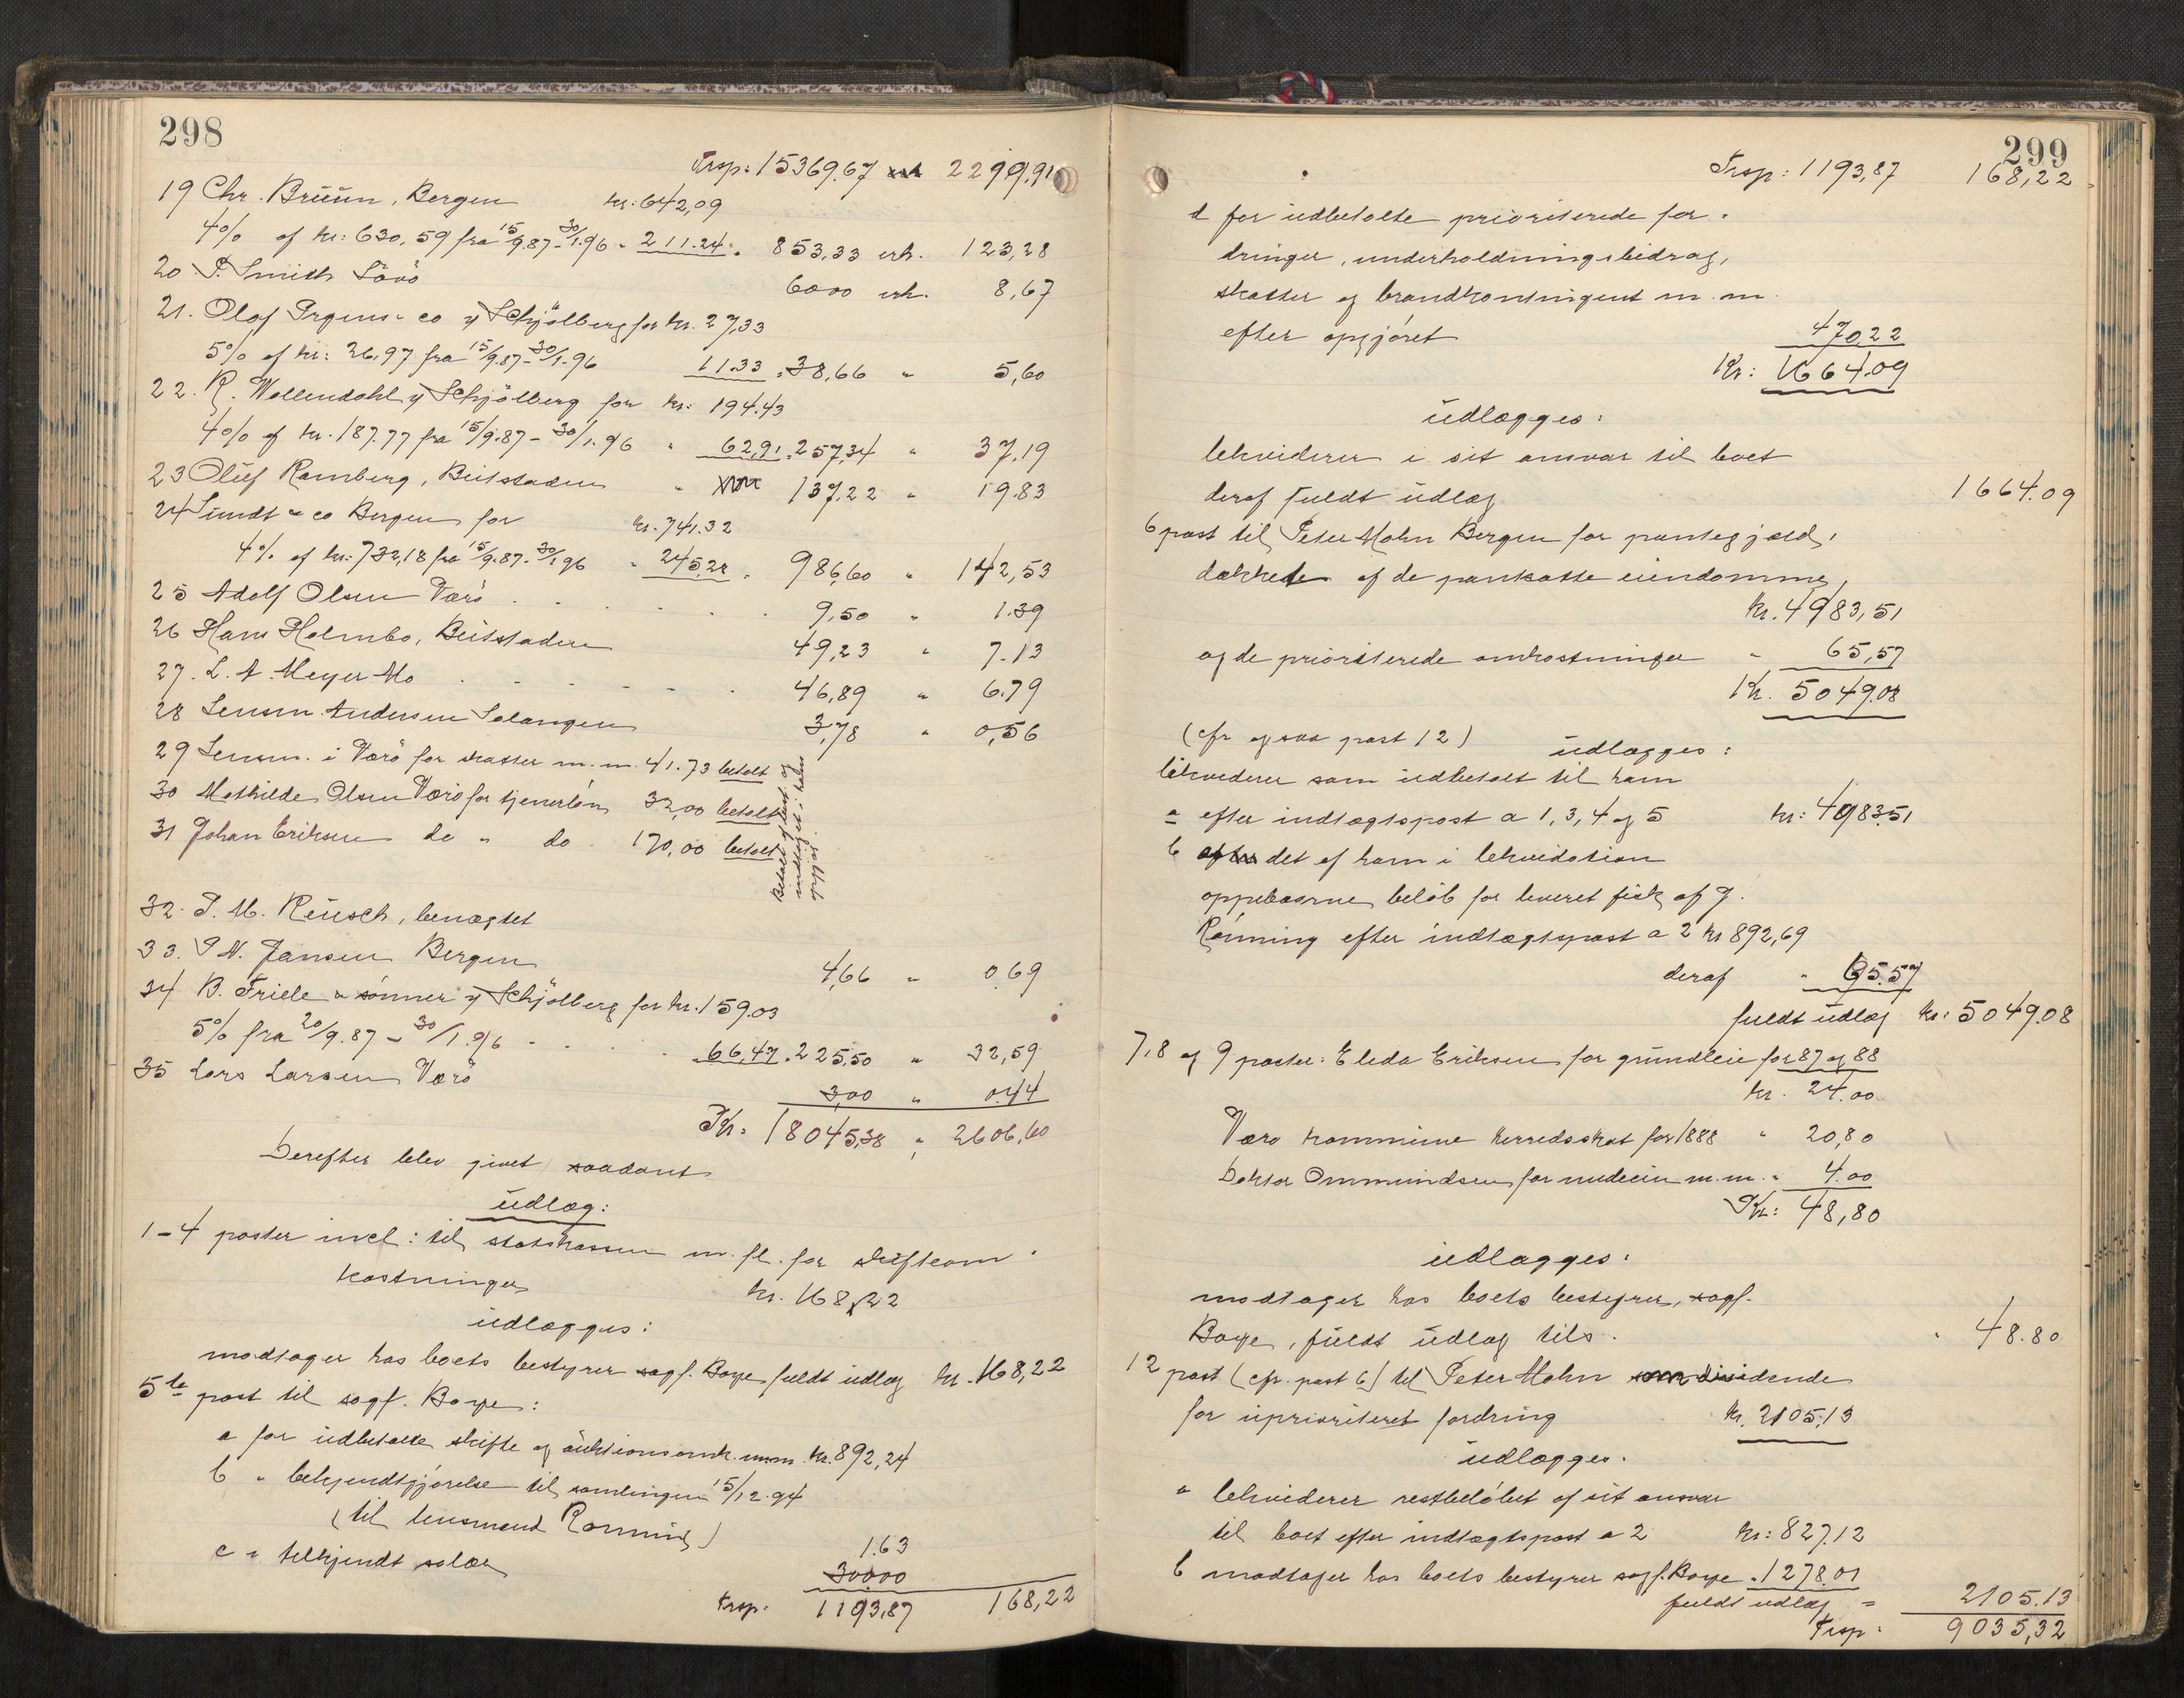 298
Trsp: 15369.67 erh. 2299.91
19 Chr. Bruun, Bergen kr: 642,09
4% af kr: 630,59 fra 15/9.87 - 30/1.96 - 211.24 . 853,33 erh. 123,28
20 P. Smith Sörö 60 00 erh. 8,67
21. Olaf Irgens & co v/ Schjölberg for kr. 27,33
5% af kr: 26,97 fra 15/9.87 - 30/1.96 11.33 . 38,66 " 5,60
22. R. Wallendahl v/ Schjölberg for kr: 194.43
4% af kr. 187.77 fra 15/9.87 - 30/1.96 " 62,91 . 257,34 " 37.19
23 Oluf Ramberg, Beitstaden " 137,22 " 19.83
24 Sundt & co Bergen for kr. 741.32
4% af kr: 732,18 fra 15/9.87 - 30/1 96 " 245,28 . 986,60 " 142,53
25 Adolf Olsen Værö . . . . 9,50 " 1.39
26 Hans Holmbo, Beitstaden 49,23 " 7.13
27. L. A. Meyer Mo . . . . 46,89 " 6.79
28 Lensm. Andersen Salangen 3,78 " 0,56
29 Lensm. i Værö for skatter m. m. 41.73 betalt
30 Mathilde Olsen Værö for tjenerlön 32,00 betalt
31 Johan Eriksen do " do 170,00 betalt
Betalt af boet og indtaget i hans opgjör.
32. J. M. Reusch, benægtet
33. P. N. Jansen Bergen 4,66 " 0.69
34 B. Friele & sönner v/ Schjölberg for kr. 159.03
5% fra 20/9.87 - 30/1.96 . . . . 66,47 . 225,50 " 32,59
35 Lars Larsen Værö 3,00 " 0.44
Kr: 18045,38 " 2606,60
Derefter blev givet saadant
udlæg:
1 - 4 poster incl: til statskassen m. fl. for skifteom-
kostninger kr. 168,22
udlægges:
modtager hos boets bestyrer sagf. Boye fuldt udlæg kr. 168,22
5te post til sagf. Boye:
a for udbetalte skifte og auktionsomk. m.m. kr. 892,24
b " bekjendtgjörelse til samlingen 15/12.94
(til lensmand Rønning) 1.63
c " tilkjendt salær 300.00
Trsp: 1193,87 168,22
299
Trsp: 1193,87 168,22
d for udbetalte prioriterede for-
dringer, underholdningsbidrag,
skatter og brandkontingent m. m.
efter opgjöret 470.22
Kr: 1664.09
udlægges:
likviderer i sit ansvar til boet
deraf fuldt udlæg 1664.09
6 post til Peter Mohn Bergen for pantegjæld,
dækket af de pantsatte eiendomme,
kr. 4983,51
og de prioriterede omkostninger " 65,57
Kr. 5049.08
(cfr. ogsaa post 12) udlægges:
likviderer som udbetalt til ham
a efter indtægtspost a 1, 3, 4 og 5 kr: 4983.51
b det af ham i likvidation
oppebaarne belöb for leveret fisk af J.
Rønning efter indtægtspost a 2 kr 892,69
deraf " 65.57
fuldt udlæg kr: 5049.08
7, 8 og 9 poster: Eleda Eriksen for grundleie for 87 og 88
kr. 24.00
Værø kommune herredsskat for 1888 " 20,80
Doktor Ommundsen for medicin m. m. " 4.00
Kr: 48,80
udlægges:
modtager hos boets bestyrer, sagf.
Boye, fuldt udlæg tils. " 48.80
12 post (cfr. post 6) til Peter Mohn som dividende
for uprioriteret fordring kr. 2105.13
udlægges:
a likviderer restbelöbet af sit ansvar
til boet efter indtægtspost a 2 kr: 827.12
b modtager hos boets bestyrer sagf. Boye " 1278.01
fuldt udlæg = 2105.13
Trsp: 9035,32